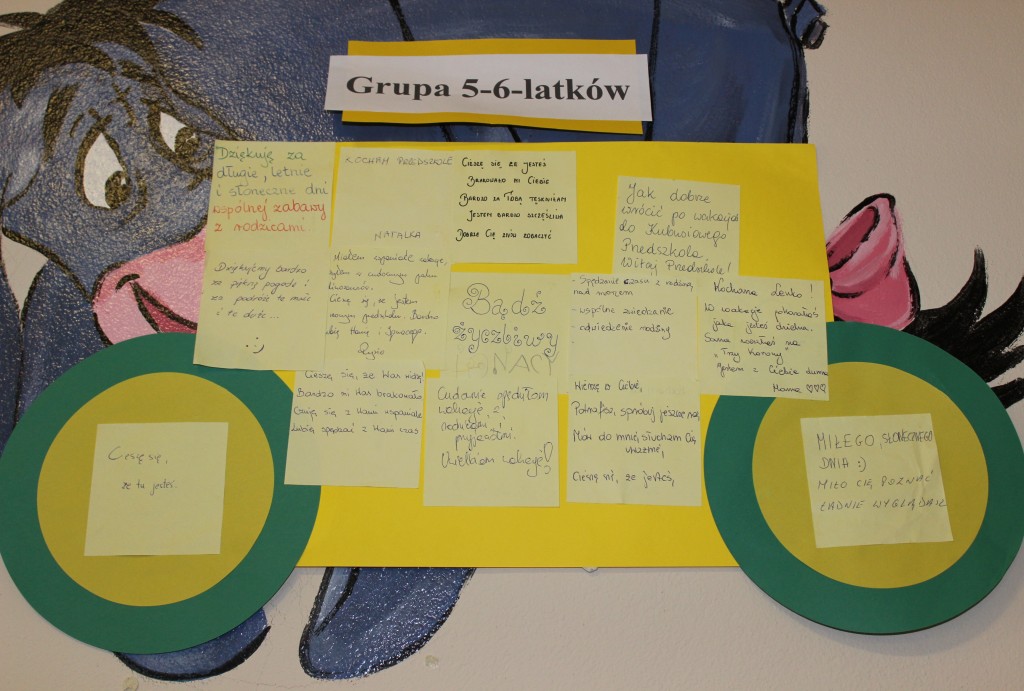 Grupa 5-6-latków
Dziękuję za
długie, letnie
i słoneczne dni
wspólnej zabawy
z rodzicami.
Dziękujemy bardzo
za piękną pogodę i
za podróże te małe
i te duże...
:-)
KOCHAM PRZEDSZKOLE
NATALKA
Miałem wspaniałe wakacje,
byłem w cudownym
Cieszę się, że jestem
Bardzo
CIESZĘ SIĘ ŻE JESTEŚ
BRAKOWAŁO MI CIEBIE
BARDZO ZA TOBĄ TĘSKNIŁAM
JESTEM BARDZO SZCZĘŚLIWA
DOBRZE CIĘ ZNÓW ZOBACZYĆ
Jak dobrze
wrócić po wakacjach
do Kubusiowego
Przedszkola.
Witaj Przedszkole!
Bądź
życzliwy
IGNACY
- Spędzanie czasu z rodziną
nad morzem
- wspólne zwiedzanie
- odwiedzenie rodziny
-
Kochana Lenko!
W wakacje pokazałaś
jaka jesteś dzielna.
Sama weszłaś na
„Trzy Korony"
Jestem z Ciebie dumna
Mama ♡♡♡
Cieszę się, że Was widzę!
Bardzo mi Was brakowało
Czuję się z Wami wspaniale
Lubię spędzać z Wami czas
Cudownie spędziłam
wakacje z
rodziną i
przyjaciółmi.
Uwielbiam wakacje!
Wierzę w Ciebie,
Potrafisz, spróbuj jeszcze raz,
Mów do mnie, słucham Cię
uważnie,
Cieszę się, że jesteś,
Cieszę się,
że tu jesteś.
MIŁEGO, SŁONECZNEGO
DNIA :)
MIŁO CIĘ POZNAĆ
ŁADNIE WYGLĄDASZ